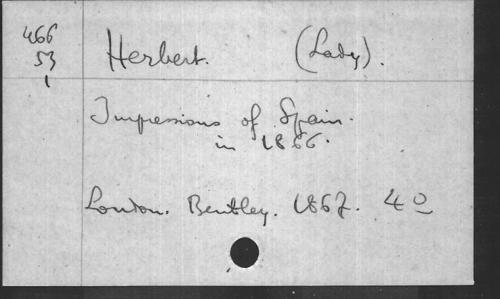 466 Herbert. (Lady).
53
1
Impressions of Spain.
in 1866.
London. Bentley. 1867. 4º